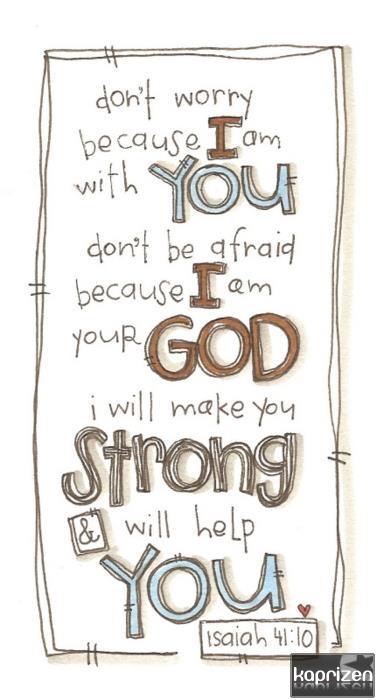 don't worry
because I am
with YOU
don't be afraid
because I am
your GOD
i will make you
Strong
& will help
YOU
Isaiah 41:10
kaprizen